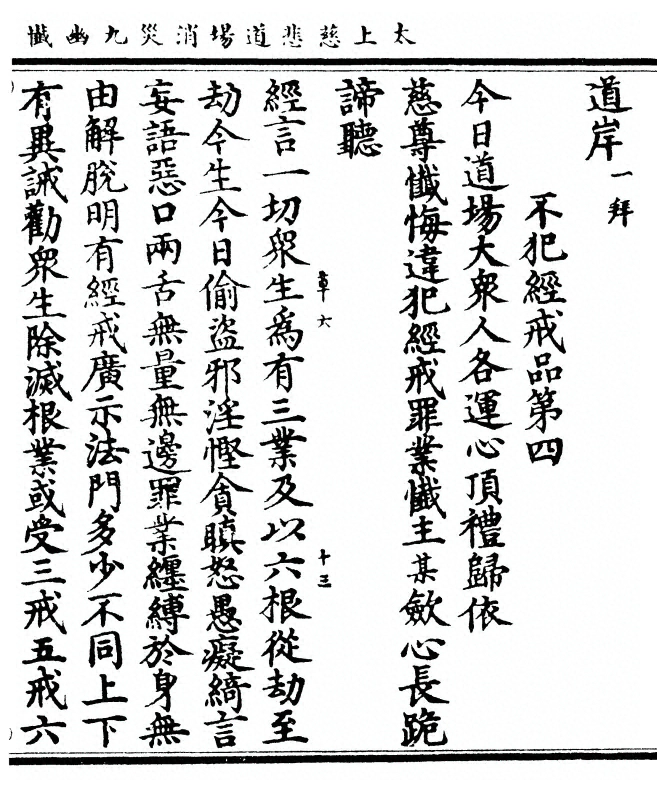 太上慈悲道場消災九幽懺
道岸一拜
不犯經戒品第四
今日道場大衆人各運心頂禮歸依
慈尊懺悔違犯經戒罪業懺主某歛心長跪
諦聽
章六
十三
經言一切衆生爲有三業及以六根從劫至
劫今生今日偷盜邪淫慳貪瞋怒愚癡綺言
妄語惡口兩舌無量無邊罪業纏縛於身無
由解脫明有經戒廣示法門多少不同上下
有異誡勸衆生除滅根業或受三戒五戒六